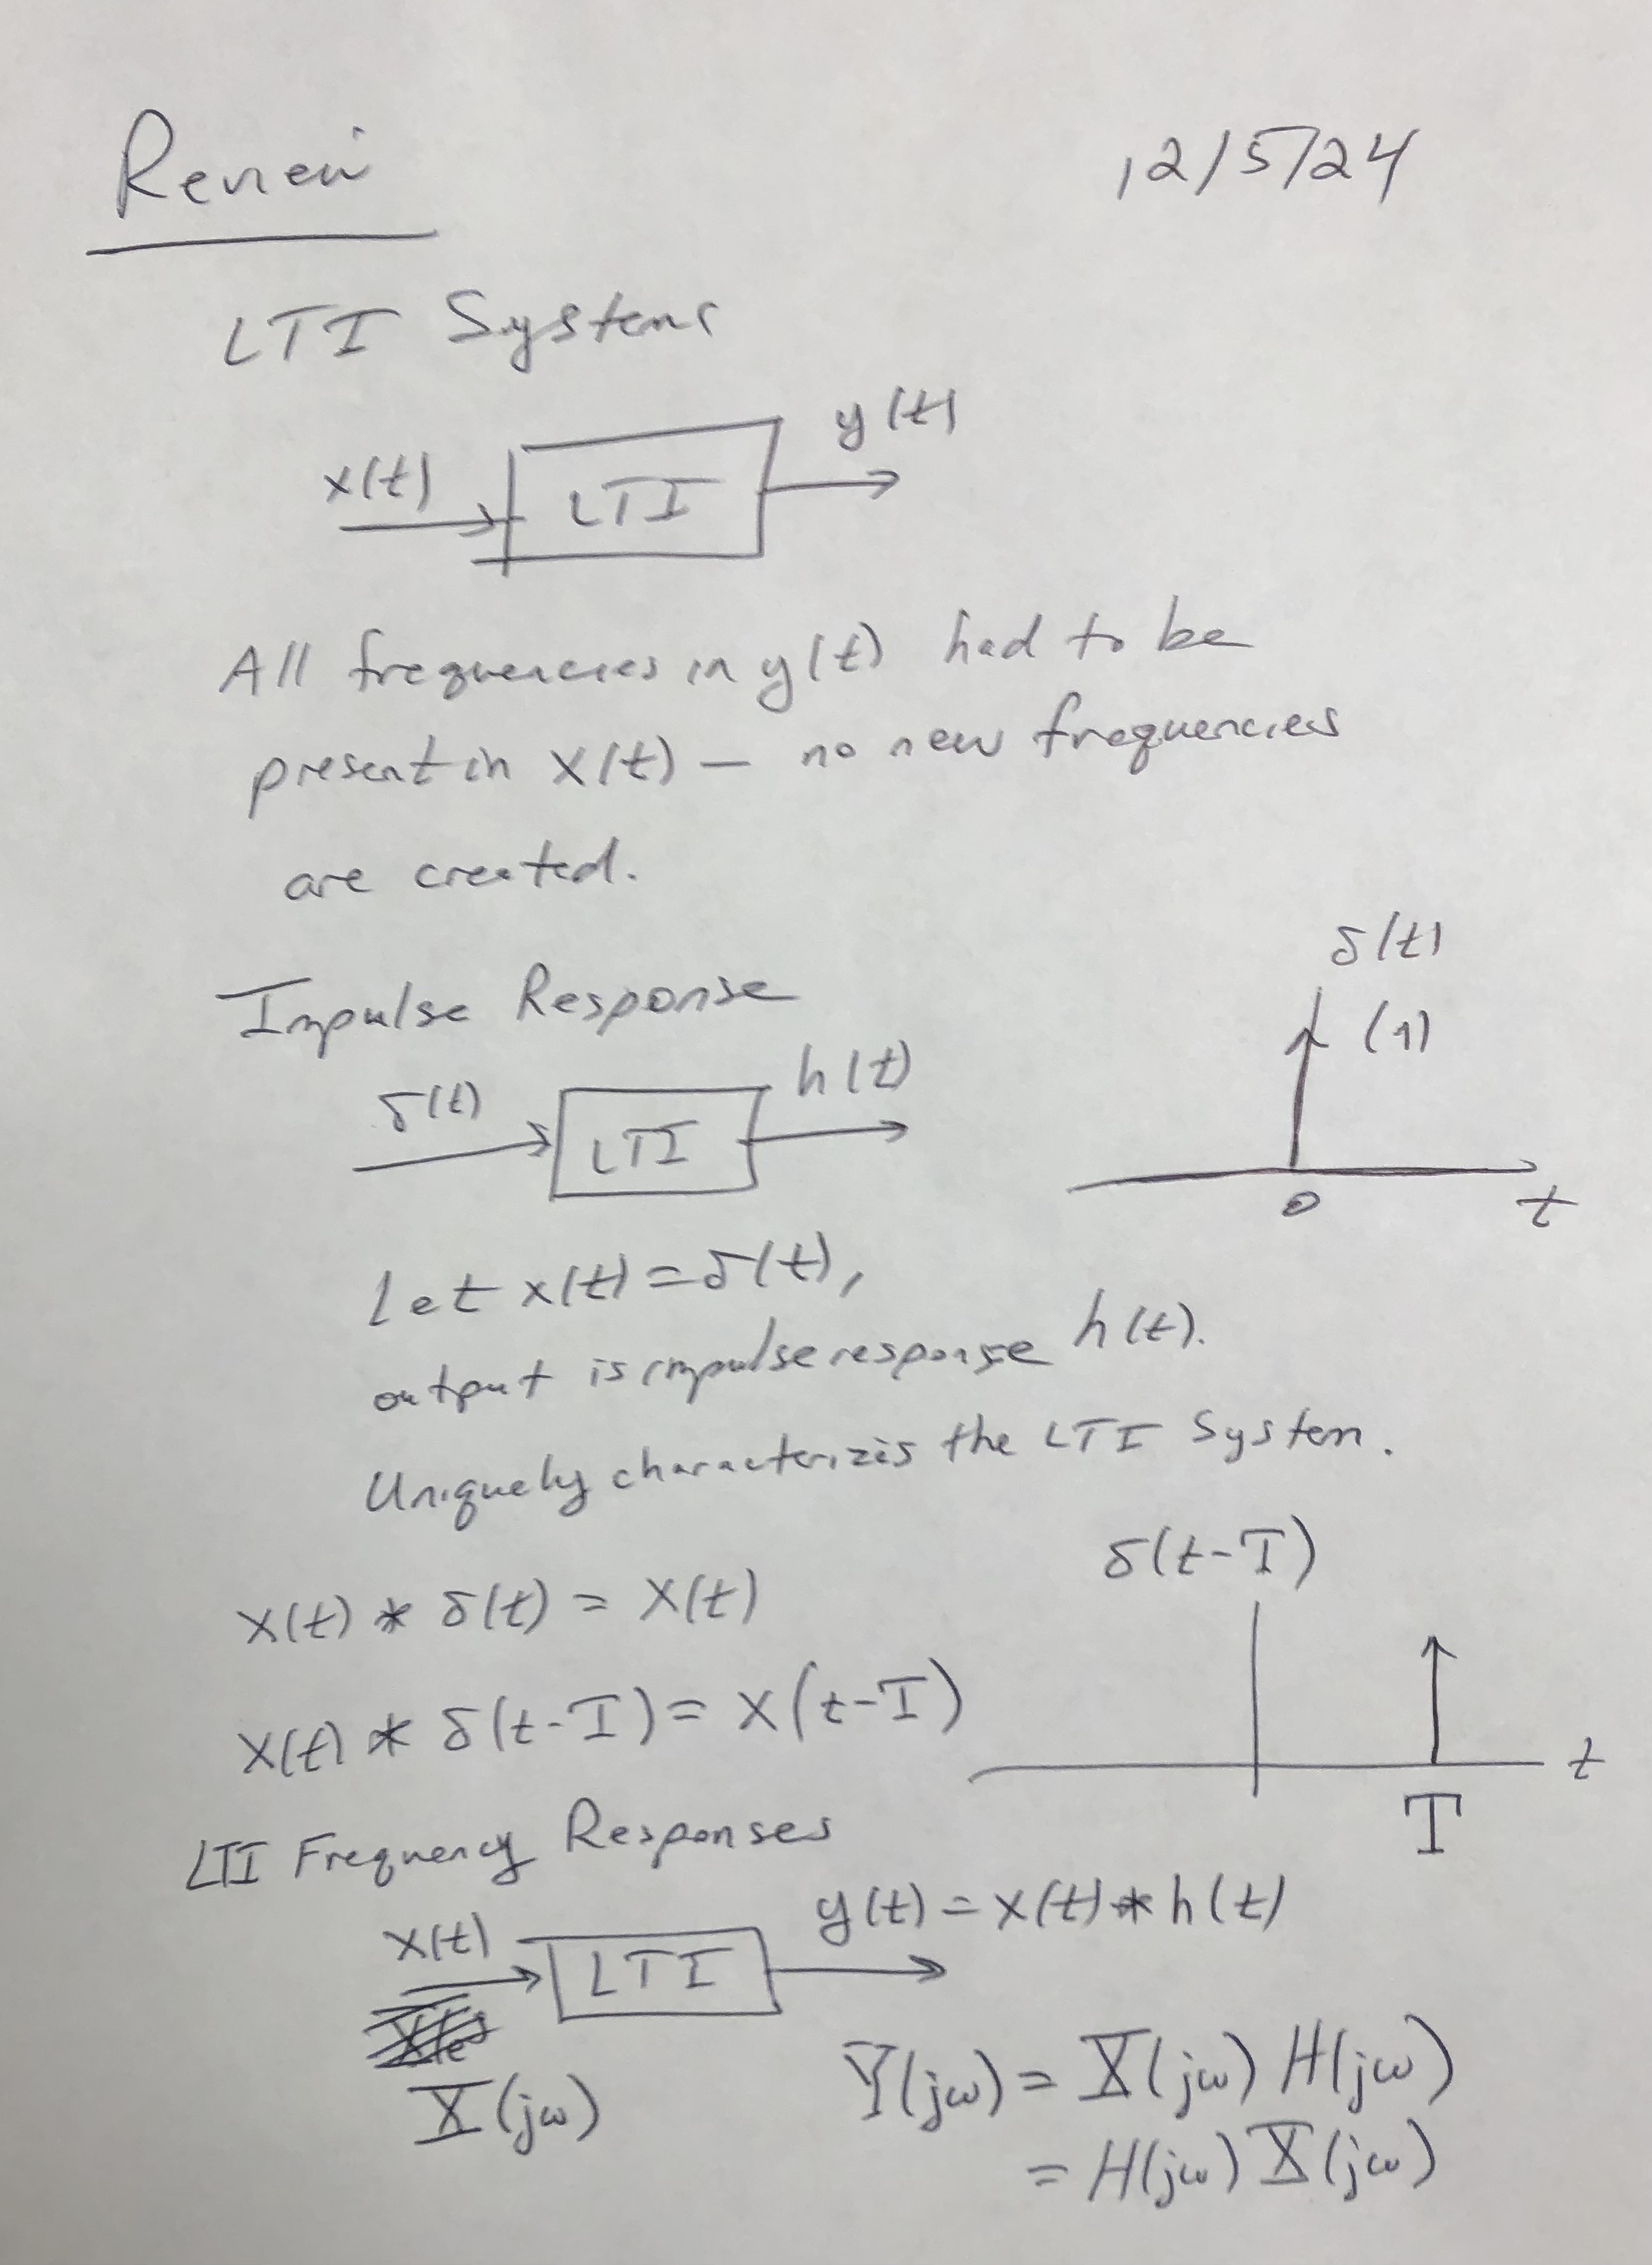 Review
12/5/24
LTI Systems
x(t)
LTI
y(t)
All frequencies in y(t) had to be
present in x(t) — no new frequencies
are created.
Impulse Response
δ(t)
LTI
h(t)
δ(t)
(1)
0
t
Let x(t) = δ(t),
output is impulse response h(t).
Uniquely characterizes the LTI System.
x(t) * δ(t) = x(t)
x(t) * δ(t-T) = x(t-T)
δ(t-T)
t
T
LTI Frequency Responses
x(t)
LTI
y(t) = x(t) * h(t)
X(jω)
Y(jω) = X(jω) H(jω)
= H(jω) X(jω)